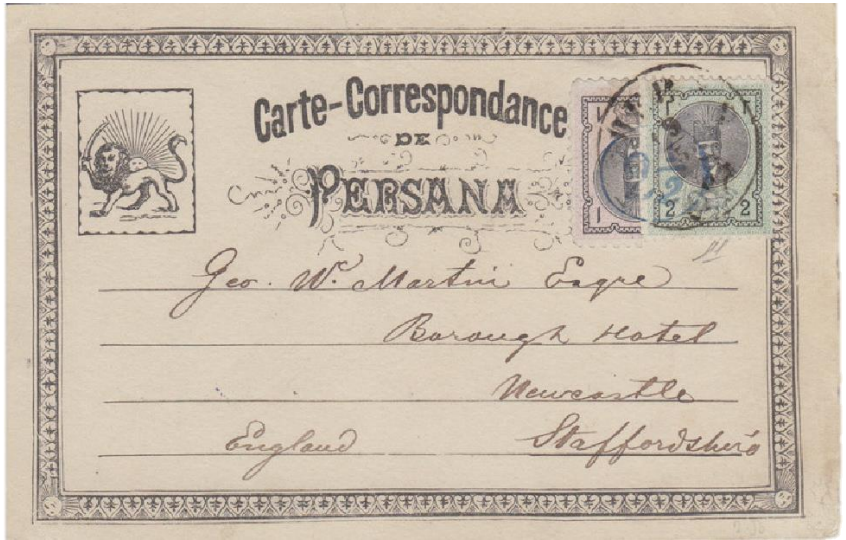 Carte-Correspondance
DE
PERSANA
1
2 2
Geo. W. Martin Esqre
Borough Hotel
Newcastle
England Staffordshire